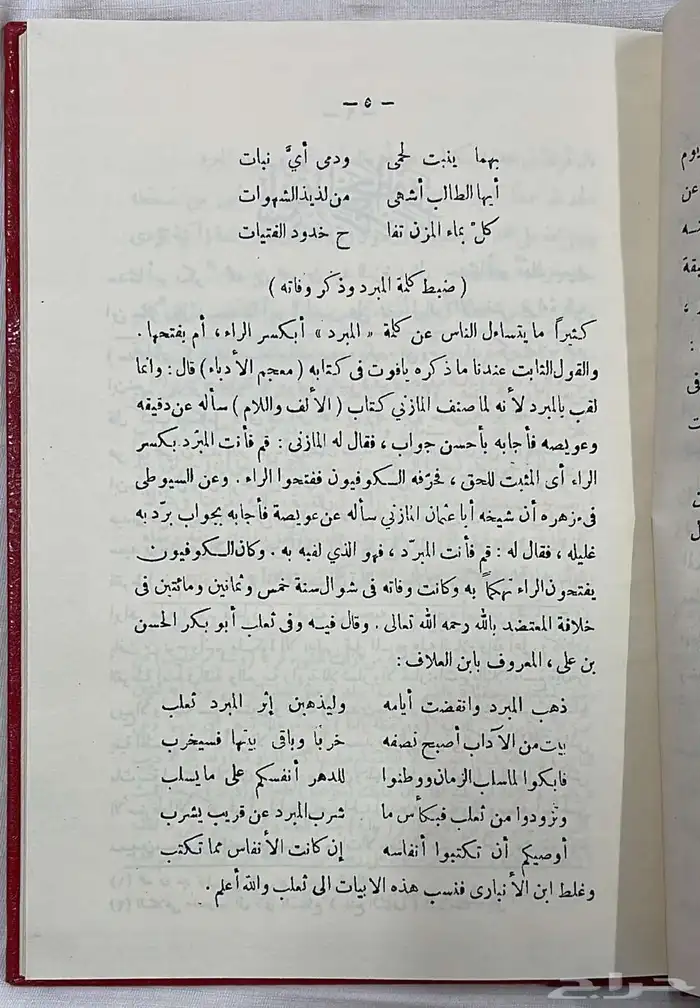 — ٥ —
بهما ينبت لحمى ودمى أىَّ نبات
أيها الطالب أشهى من لذيذ الشهوات
كلْ بماء المزن تفا ح خدود الفتيات
( ضبط كلمة المبرد وذكر وفاته )
كثيراً ما يتساءل الناس عن كلمة « المبرد » أبكسر الراء ، أم بفتحها .
والقول الثابت عندنا ما ذكره ياقوت فى كتابه ( معجم الأدباء ) قال : وانما
لقب بالمبرد لأنه لما صنف المازنى كتاب ( الألف واللام ) سأله عن دقيقه
وعويصه فأجابه بأحسن جواب ، فقال له المازنى : قم فأنت المبرّد بكسر
الراء أى المثبت للحق ، فحرّفه الكوفيون ففتحوا الراء . وعن السيوطى
فى مزهره أن شيخه أبا عثمان المازنى سأله عن عويصة فأجابه بجواب برّد به
غليله ، فقال له : قم فأنت المبرّد ، فهو الذي لقبه به . وكان الكوفيون
يفتحون الراء تهكماً به وكانت وفاته فى شوال سنة خمس وثمانين ومائتين فى
خلافة المعتضد بالله رحمه الله تعالى . وقال فيه وفى ثعلب أبو بكر الحسن
بن على ، المعروف بابن العلاف :
ذهب المبرد وانقضت أيامه وليذهبن إثر المبرد ثعلب
بيت من الآداب أصبح نصفه خربا وباقى بيتها فسيخرب
فابكوا لما سلب الزمان ووطنوا للدهر أنفسكم على ما يسلب
وتزودوا من ثعلب فبكأس ما شرب المبرد عن قريب يشرب
أوصيكم أن تكتبوا أنفاسه إن كانت الأنفاس مما تكتب
وغلط ابن الأنبارى فنسب هذه الابيات الى ثعلب والله أعلم .
حراج